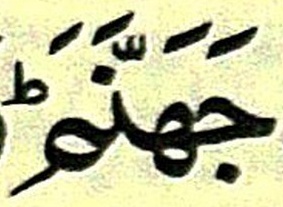 جَهَنَّمَ ؕ